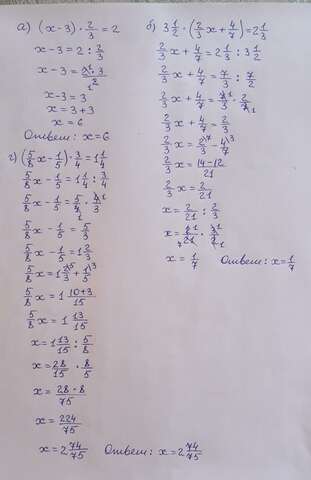 а) (x-3)·2/3=2
x-3=2:2/3
x-3=2¹·3/2₁
x-3=3
x=3+3
x=6
Ответ: x=6
г) (5/8x-1/5)·3/4=1 1/4
5/8x-1/5=1 1/4:3/4
5/8x-1/5=5/4₁·4¹/3
5/8x-1/5=5/3
5/8x-1/5=1 2/3
5/8x=1 2/3⁵+1/5³
5/8x=1 10+3/15
5/8x=1 13/15
x=1 13/15:5/8
x=28/15·8/5
x=28·8/75
x=224/75
x=2 74/75 Ответ: x=2 74/75
б) 3 1/2·(2/3x+4/7)=2 1/3
2/3x+4/7=2 1/3:3 1/2
2/3x+4/7=7/3:7/2
2/3x+4/7=7¹/3·2/7₁
2/3x+4/7=2/3
2/3x=2/3⁷-4/7³
2/3x=14-12/21
2/3x=2/21
x=2/21:2/3
x=2¹/21₇·3¹/2₁
x=1/7 Ответ: x=1/7